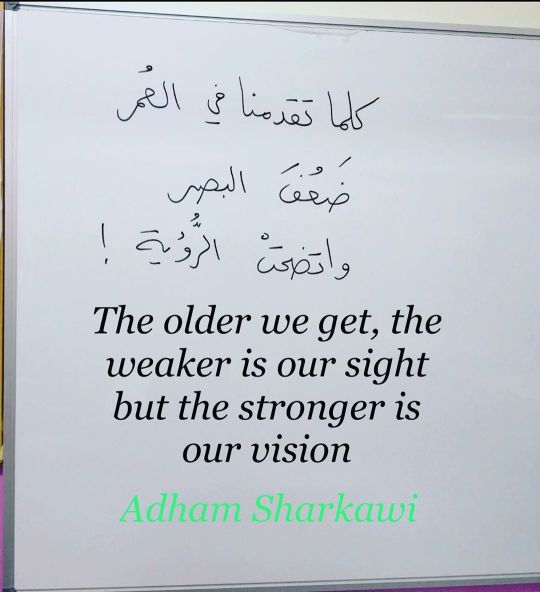 كلما تقدمنا في العُمر
ضَعُفَ البصر
واتضحتْ الرُّؤية !
The older we get, the
weaker is our sight
but the stronger is
our vision
Adham Sharkawi